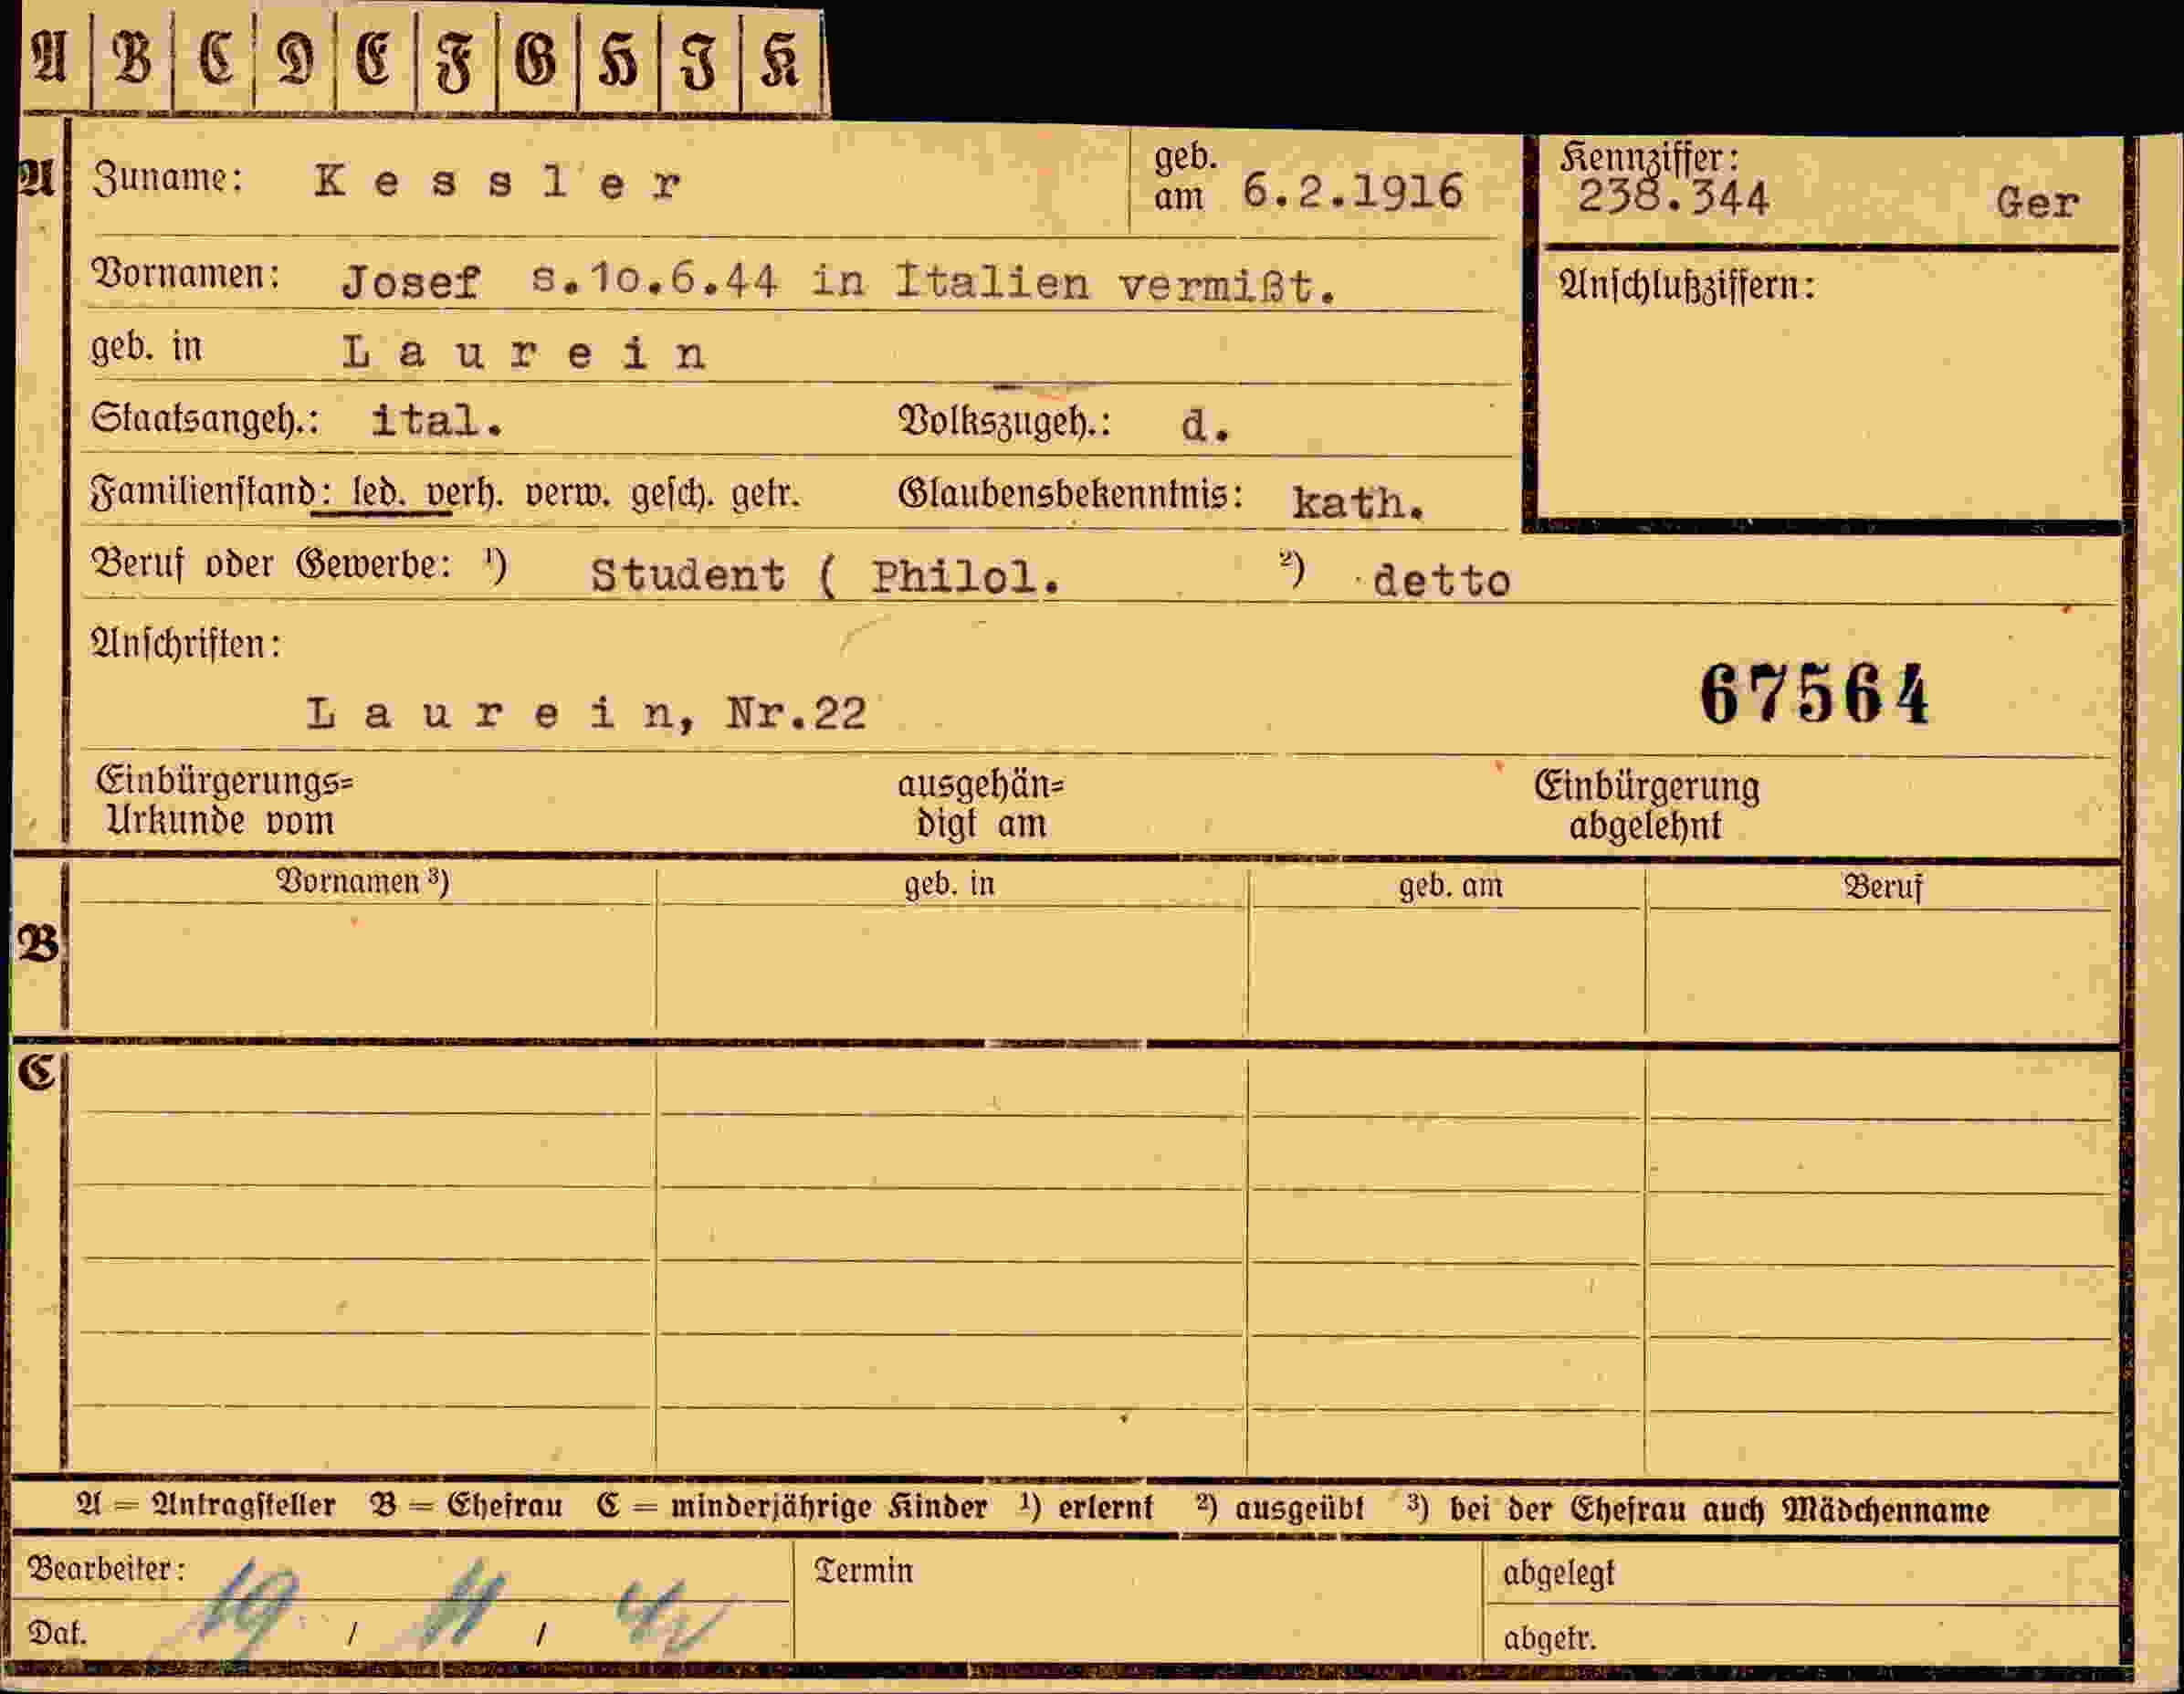 A B C D E F G H I K
A Zuname: Kessler geb. am 6.2.1916 Kennziffer: 238.344 Ger
Vornamen: Josef s.10.6.44 in Italien vermißt. Anschlußziffern:
geb. in Laurein
Staatsangeh.: ital. Volkszugeh.: d.
Familienstand: led. verh. verw. gesch. getr. Glaubensbekenntnis: kath.
Beruf oder Gewerbe: ¹) Student ( Philol. ²) detto
Anschriften:
Laurein, Nr.22 67564
Einbürgerungs= ausgehän= Einbürgerung
Urkunde vom digt am abgelehnt
Vornamen ³) geb. in geb. am Beruf
B
C
A = Antragsteller B = Ehefrau C = minderjährige Kinder ¹) erlernt ²) ausgeübt ³) bei der Ehefrau auch Mädchenname
Bearbeiter: Termin abgelegt
Dat. 19 / / abgetr.